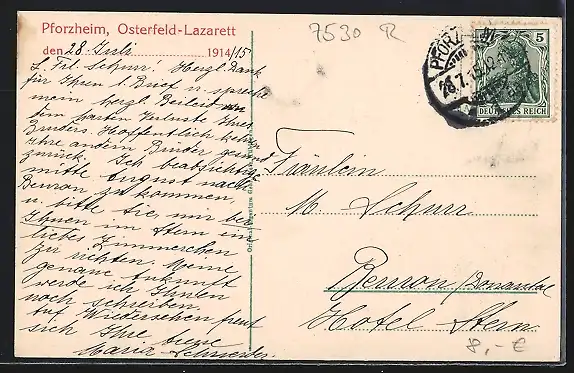 Pforzheim, Osterfeld-Lazarett
den 28. Juli 1914/15
L. Frl. Schurr! Herzl. Dank
für Ihren l. Brief u. spreche
mein herzl. Beileid
dem harten Verluste Ihres
Bruders. Hoffentlich kehren
Ihre andern Brüder gesund
zurück. Ich beabsichtige
mitte August nach
Beuron zu kommen,
u. bitte Sie, mir bei
Ihnen im Stern ein
liebes Zimmerchen
zu richten. Meine
genaue Ankunft
werde ich Ihnen
noch schreiben.
Auf Wiedersehen freut
sich Ihre treue
Maria Schneider.
7530 R
PFORZHEIM
28.7.15
5
DEUTSCHES REICH
Fräulein
M. Schurr
Beuron, Donautal
Hotel Stern
8,- €